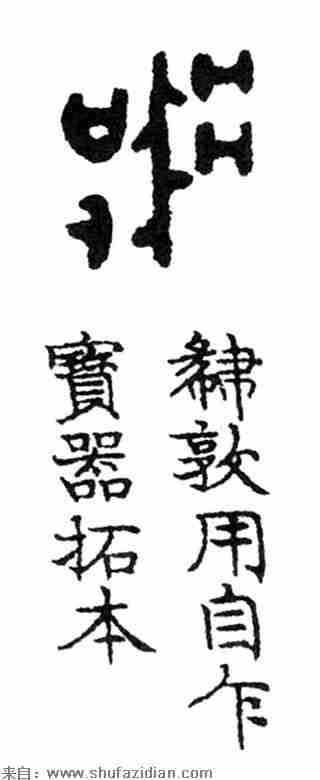 敦用自乍
寶器拓本
来自：www.shufazidian.com